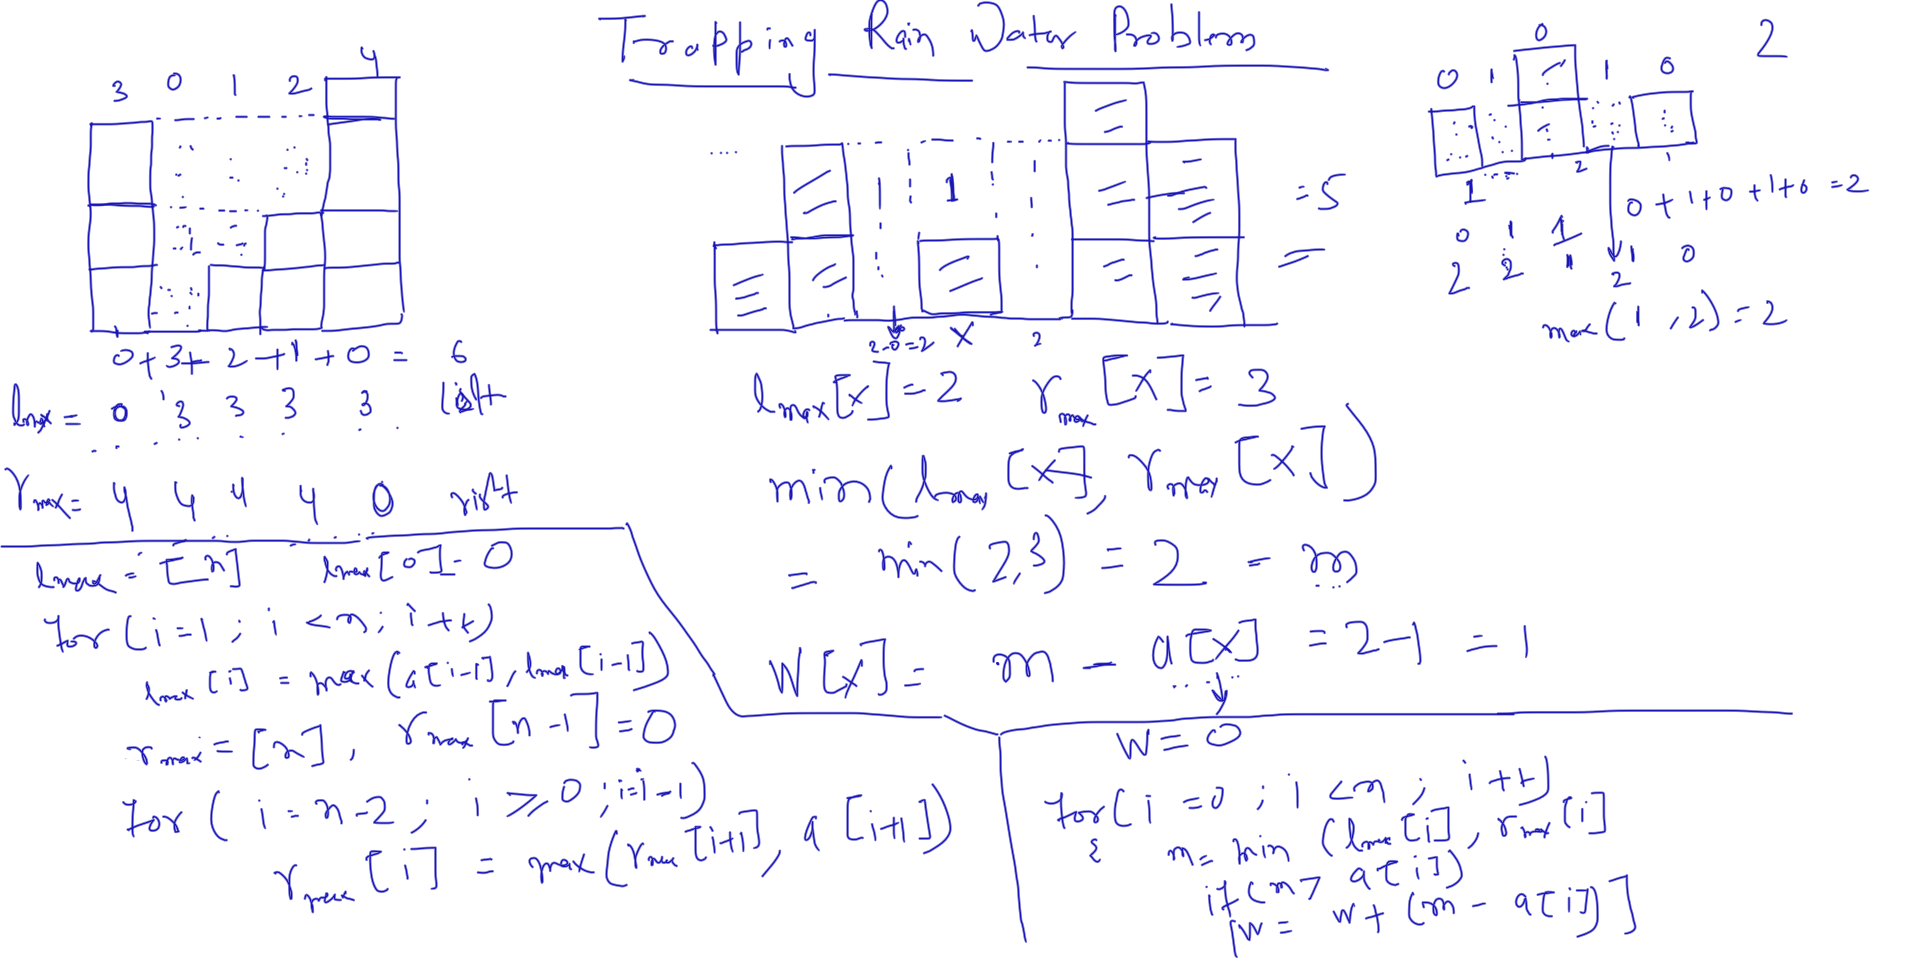 Trapping Rain Water Problem
3 0 1 2 4
0 + 3 + 2 + 1 + 0 = 6
lmax = 0 3 3 3 3 left
rmax = 4 4 4 4 0 right
lmax = [n] lmax[0] = 0
for (i=1 ; i < n; i++)
lmax [i] = max (a[i-1], lmax [i-1])
rmax = [n], rmax [n-1] = 0
for ( i = n-2 ; i ≥ 0 ; i=i-1)
rmax [i] = max (rmax [i+1], a [i+1])
1
= 5
2-0=2 X 2
lmax [x] = 2 rmax [x] = 3
min (lmax [x], rmax [x])
= min (2,3) = 2 - m
W[x] = m - a[x] = 2-1 = 1
W = 0
for (i = 0 ; i < n ; i++)
{ m = min (lmax [i], rmax [i]
if (m > a[i])
[W = W + (m - a[i])]
0 1 0 1 0 2
1 2 1
0 + 1 + 0 + 1 + 0 = 2
0 1 1 1 0
2 2 1 2
max (1, 2) = 2